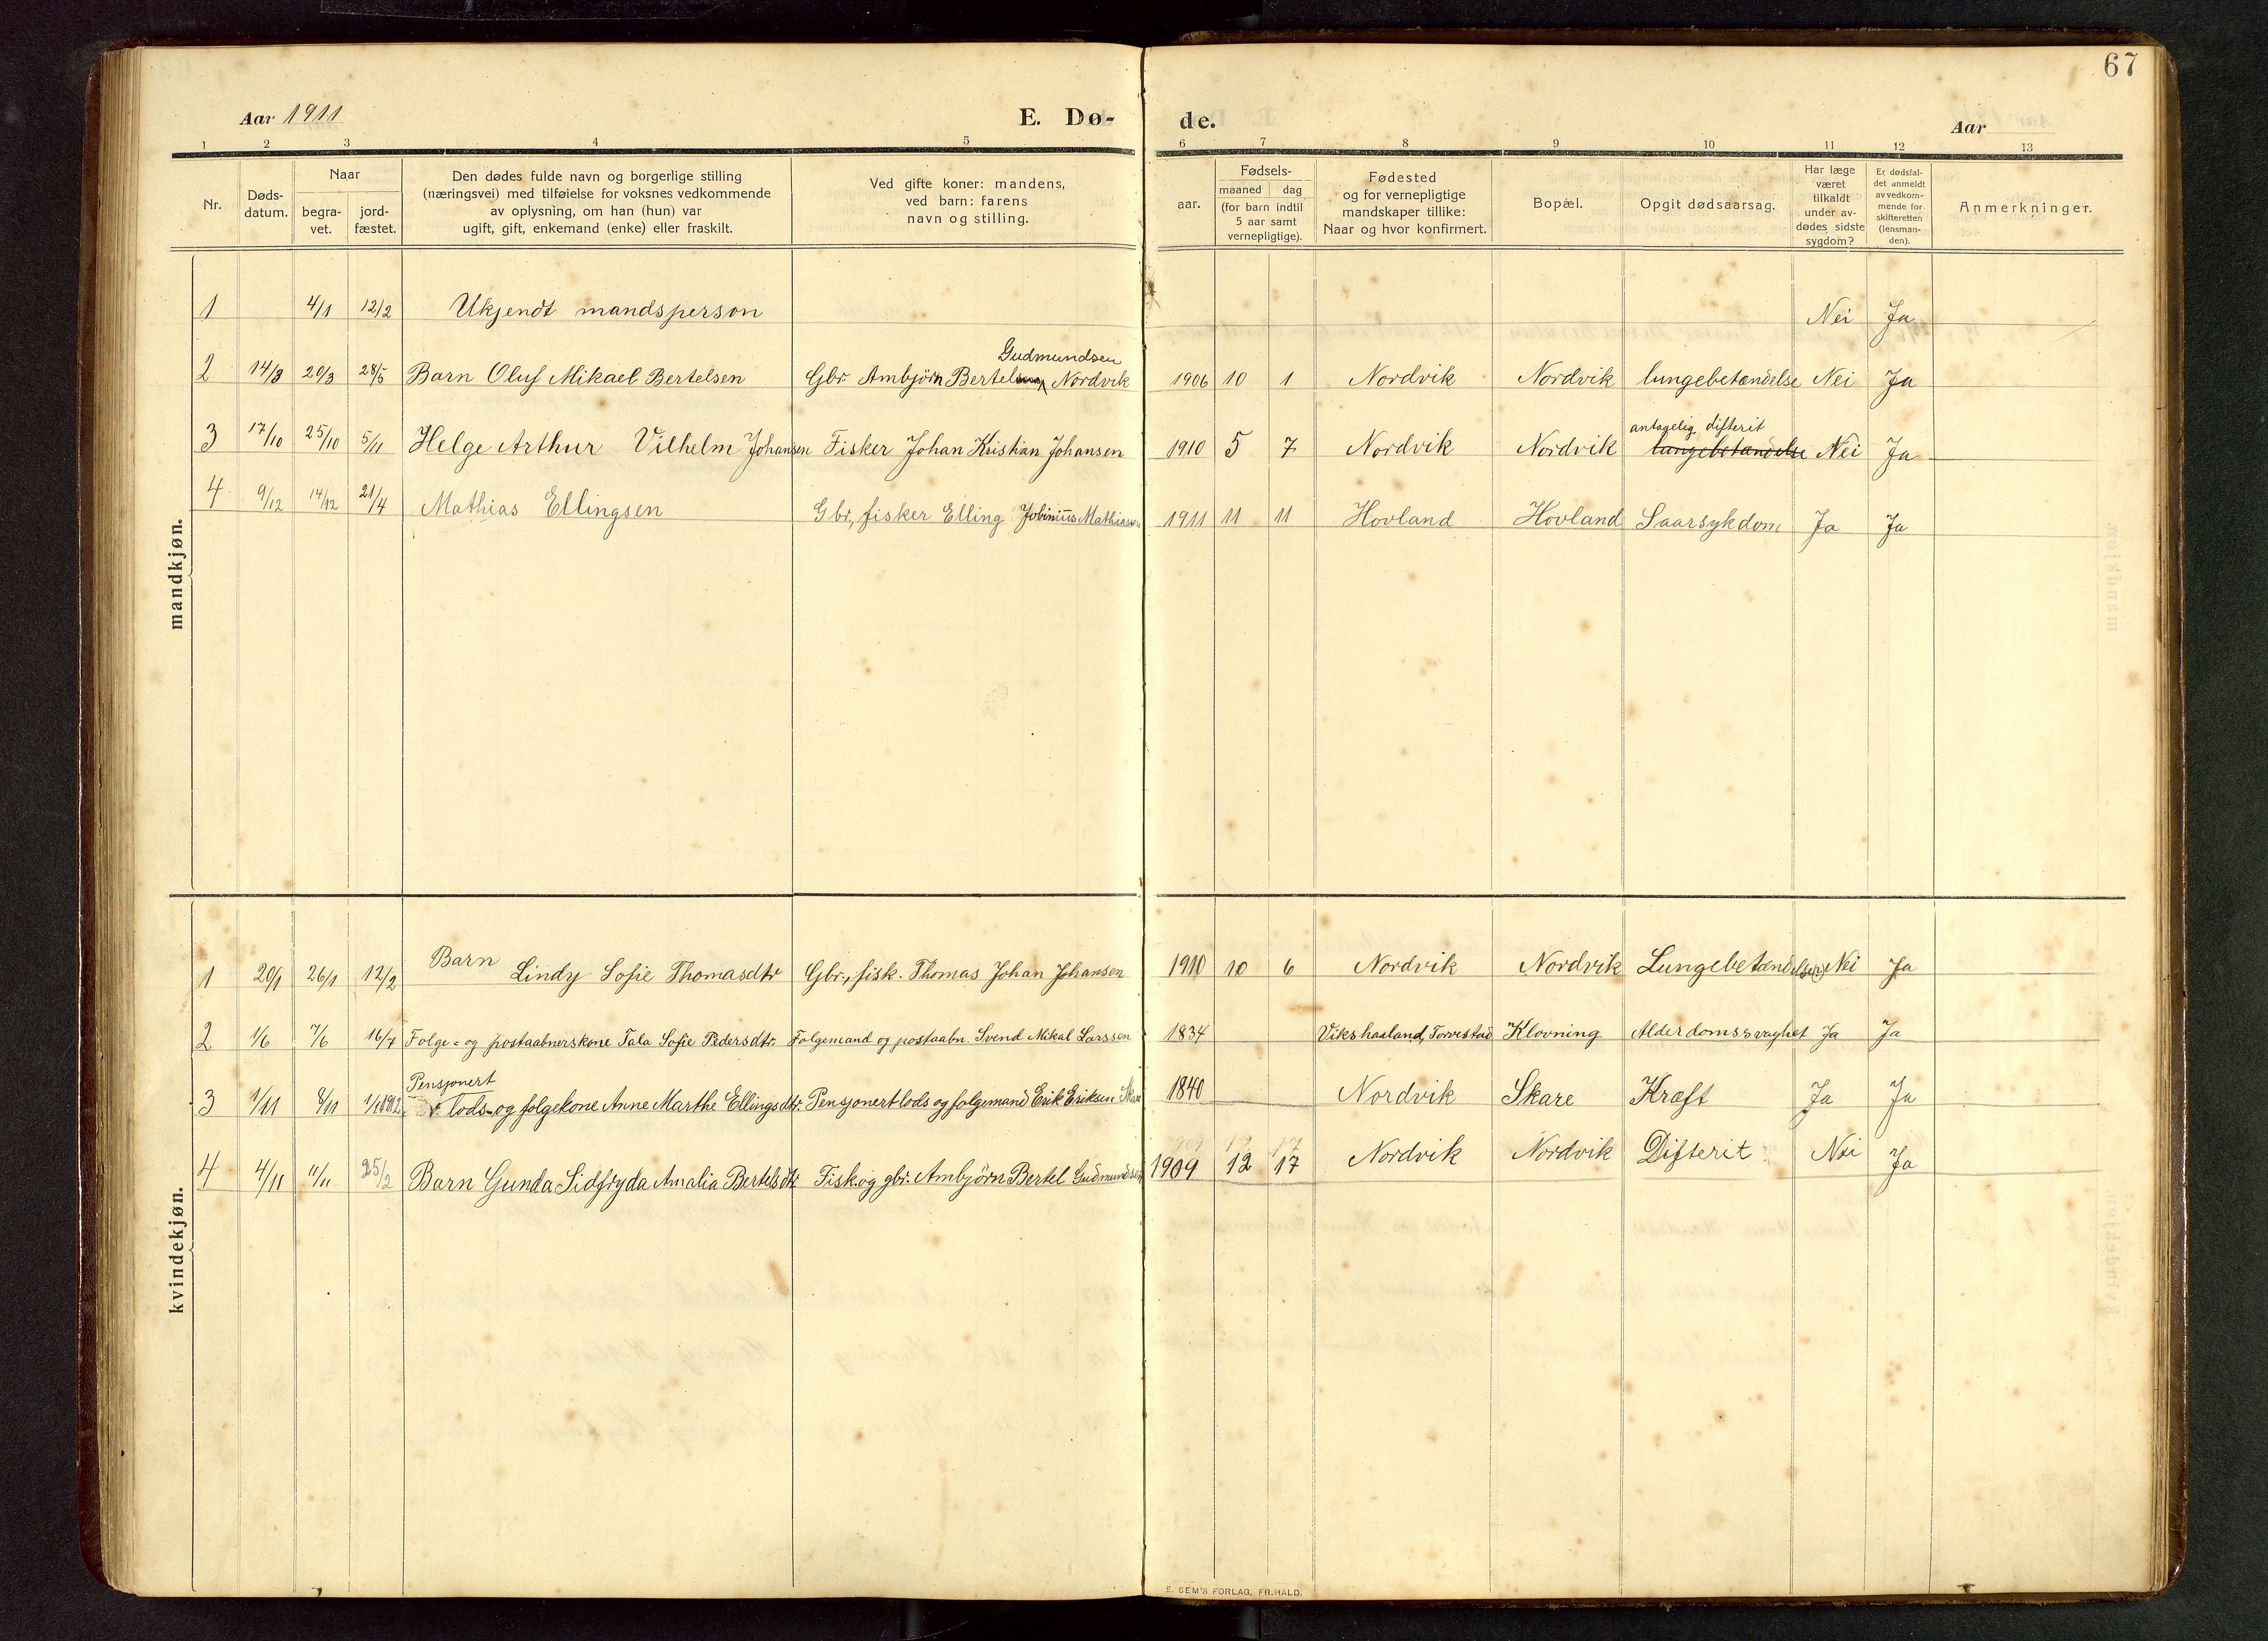 67
Aar 1911 E. Dø- de. Aar
1 2 3 4 5 6 7 8 9 10 11 12 13
Nr.
Døds-
datum.
Naar
begra-
vet.
jord-
fæstet.
Den dødes fulde navn og borgerlige stilling
(næringsvei) med tilføielse for voksnes vedkommende
av oplysning, om han (hun) var
ugift, gift, enkemand (enke) eller fraskilt.
Ved gifte koner: mandens,
ved barn: farens
navn og stilling.
aar.
Fødsels-
maaned dag
(for barn indtil
5 aar samt
vernepligtige).
Fødested
og for vernepligtige
mandskaper tillike:
Naar og hvor konfirmert.
Bopæl.
Opgit dødsaarsag.
Har læge
været
tilkaldt
under av-
dødes sidste
sygdom?
Er dødsfal-
det anmeldt
av vedkom-
mende for
skifteretten
(lensman-
den).
Anmerkninger.
mandkjøn.
1 4/1 12/2 Ukjendt mandsperson Nei Ja
Gudmundsen
2 14/3 20/3 28/5 Barn Oluf Mikael Bertelsen Gbr. Ambjörn Bertelsen Nordvik 1906 10 1 Nordvik Nordvik lungebetændelse Nei Ja
antagelig difterit
3 17/10 25/10 5/11 Helge Arthur Vilhelm Johansen Fisker Johan Kristian Johansen 1910 5 7 Nordvik Nordvik lungebetændelse Nei Ja
4 9/12 14/12 21/4 Mathias Ellingsen Gbr., fisker Elling Jobinius Mathiasen 1911 11 11 Hovland Hovland Saarsykdom Ja Ja
kvindekjøn.
1 20/1 26/1 12/2 Barn Lindy Sofie Thomasdtr Gbr., fisk. Thomas Johan Johansen 1910 10 6 Nordvik Nordvik Lungebetændelse(?) Nei Ja
2 1/6 7/6 16/7 Folge- og postaabnerskone Tala Sofie Pedersdtr. Folgemand og postaabn. Svend Mikal Larssen 1834 Vikshaaland, Torvestad Klovning Alderdomssvaghet Ja Ja
Pensjonert
3 1/11 8/11 1/1 1912 lods- og folgekone Anne Marthe Ellingsdtr. Pensjonert lods og folgemand Erik Eriksen Skare 1840 Nordvik Skare Kræft Ja Ja
4 4/11 11/11 25/2 Barn Gunda Sidfryda Amalia Bertelsdtr Fisk. og gbr. Ambjörn Bertel Gudmundsen 1909 12 17 Nordvik Nordvik Difterit Nei Ja
E. SEM'S FORLAG, FR.HALD.